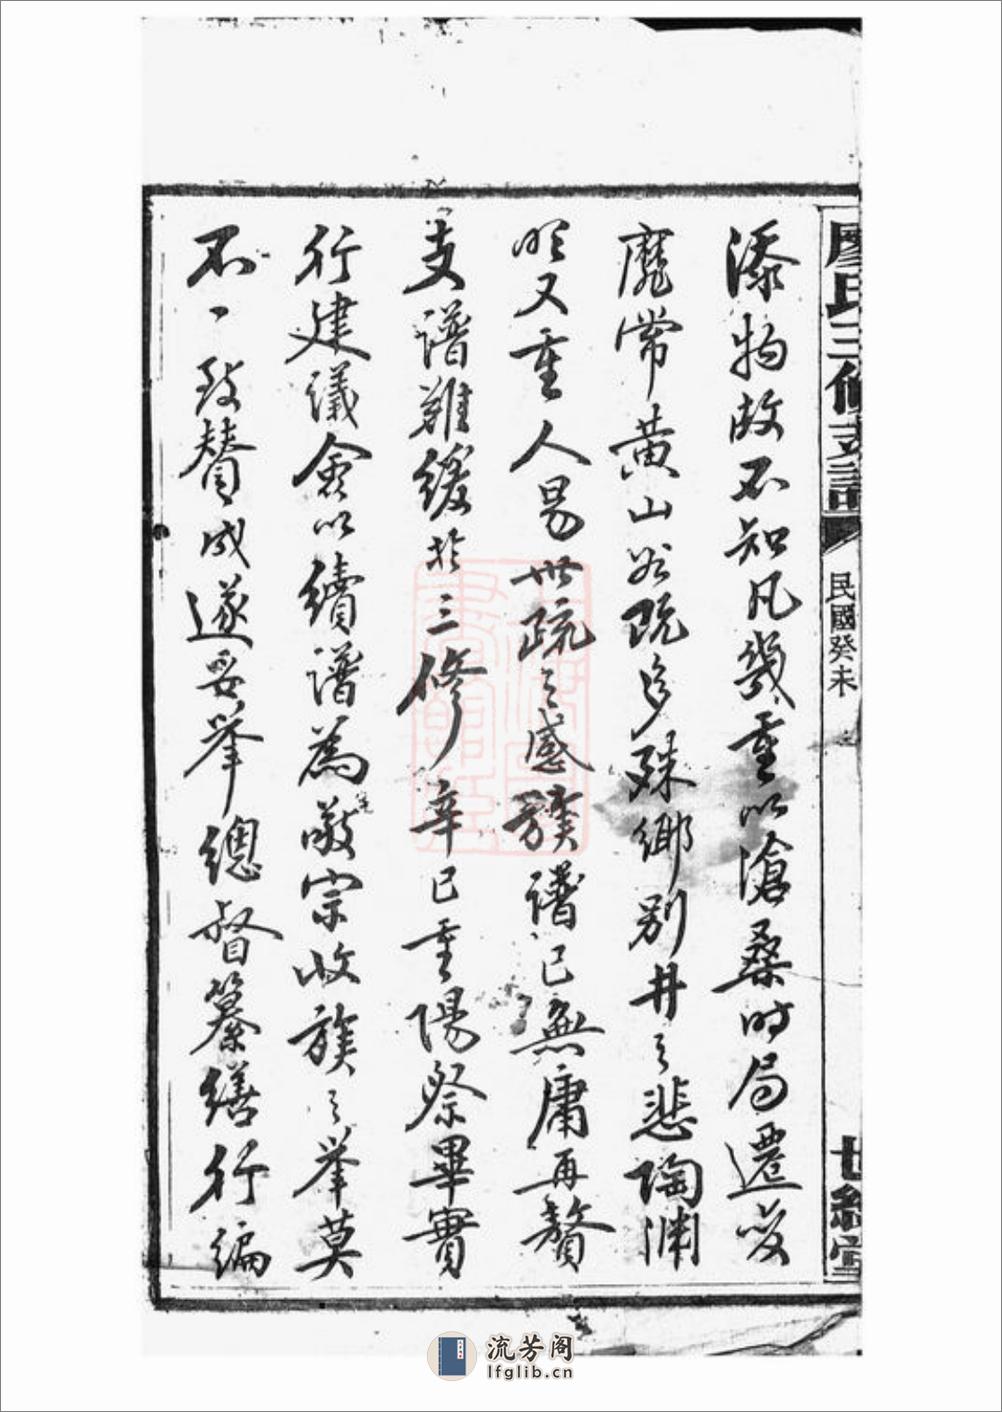 廖氏三修支譜
民國癸未
世綵堂
添物故不知凡幾重以滄桑時局遷變
靡常黃山谷既多殊鄉別井之悲陶淵
明又重人易世疏之感族譜已無庸再贅
支譜難緩於三修辛巳重陽祭畢實
行建議僉以續譜為敬宗收族之舉莫
不一致贊成遂妥舉總督纂繕行編
流芳阁
lfglib.cn